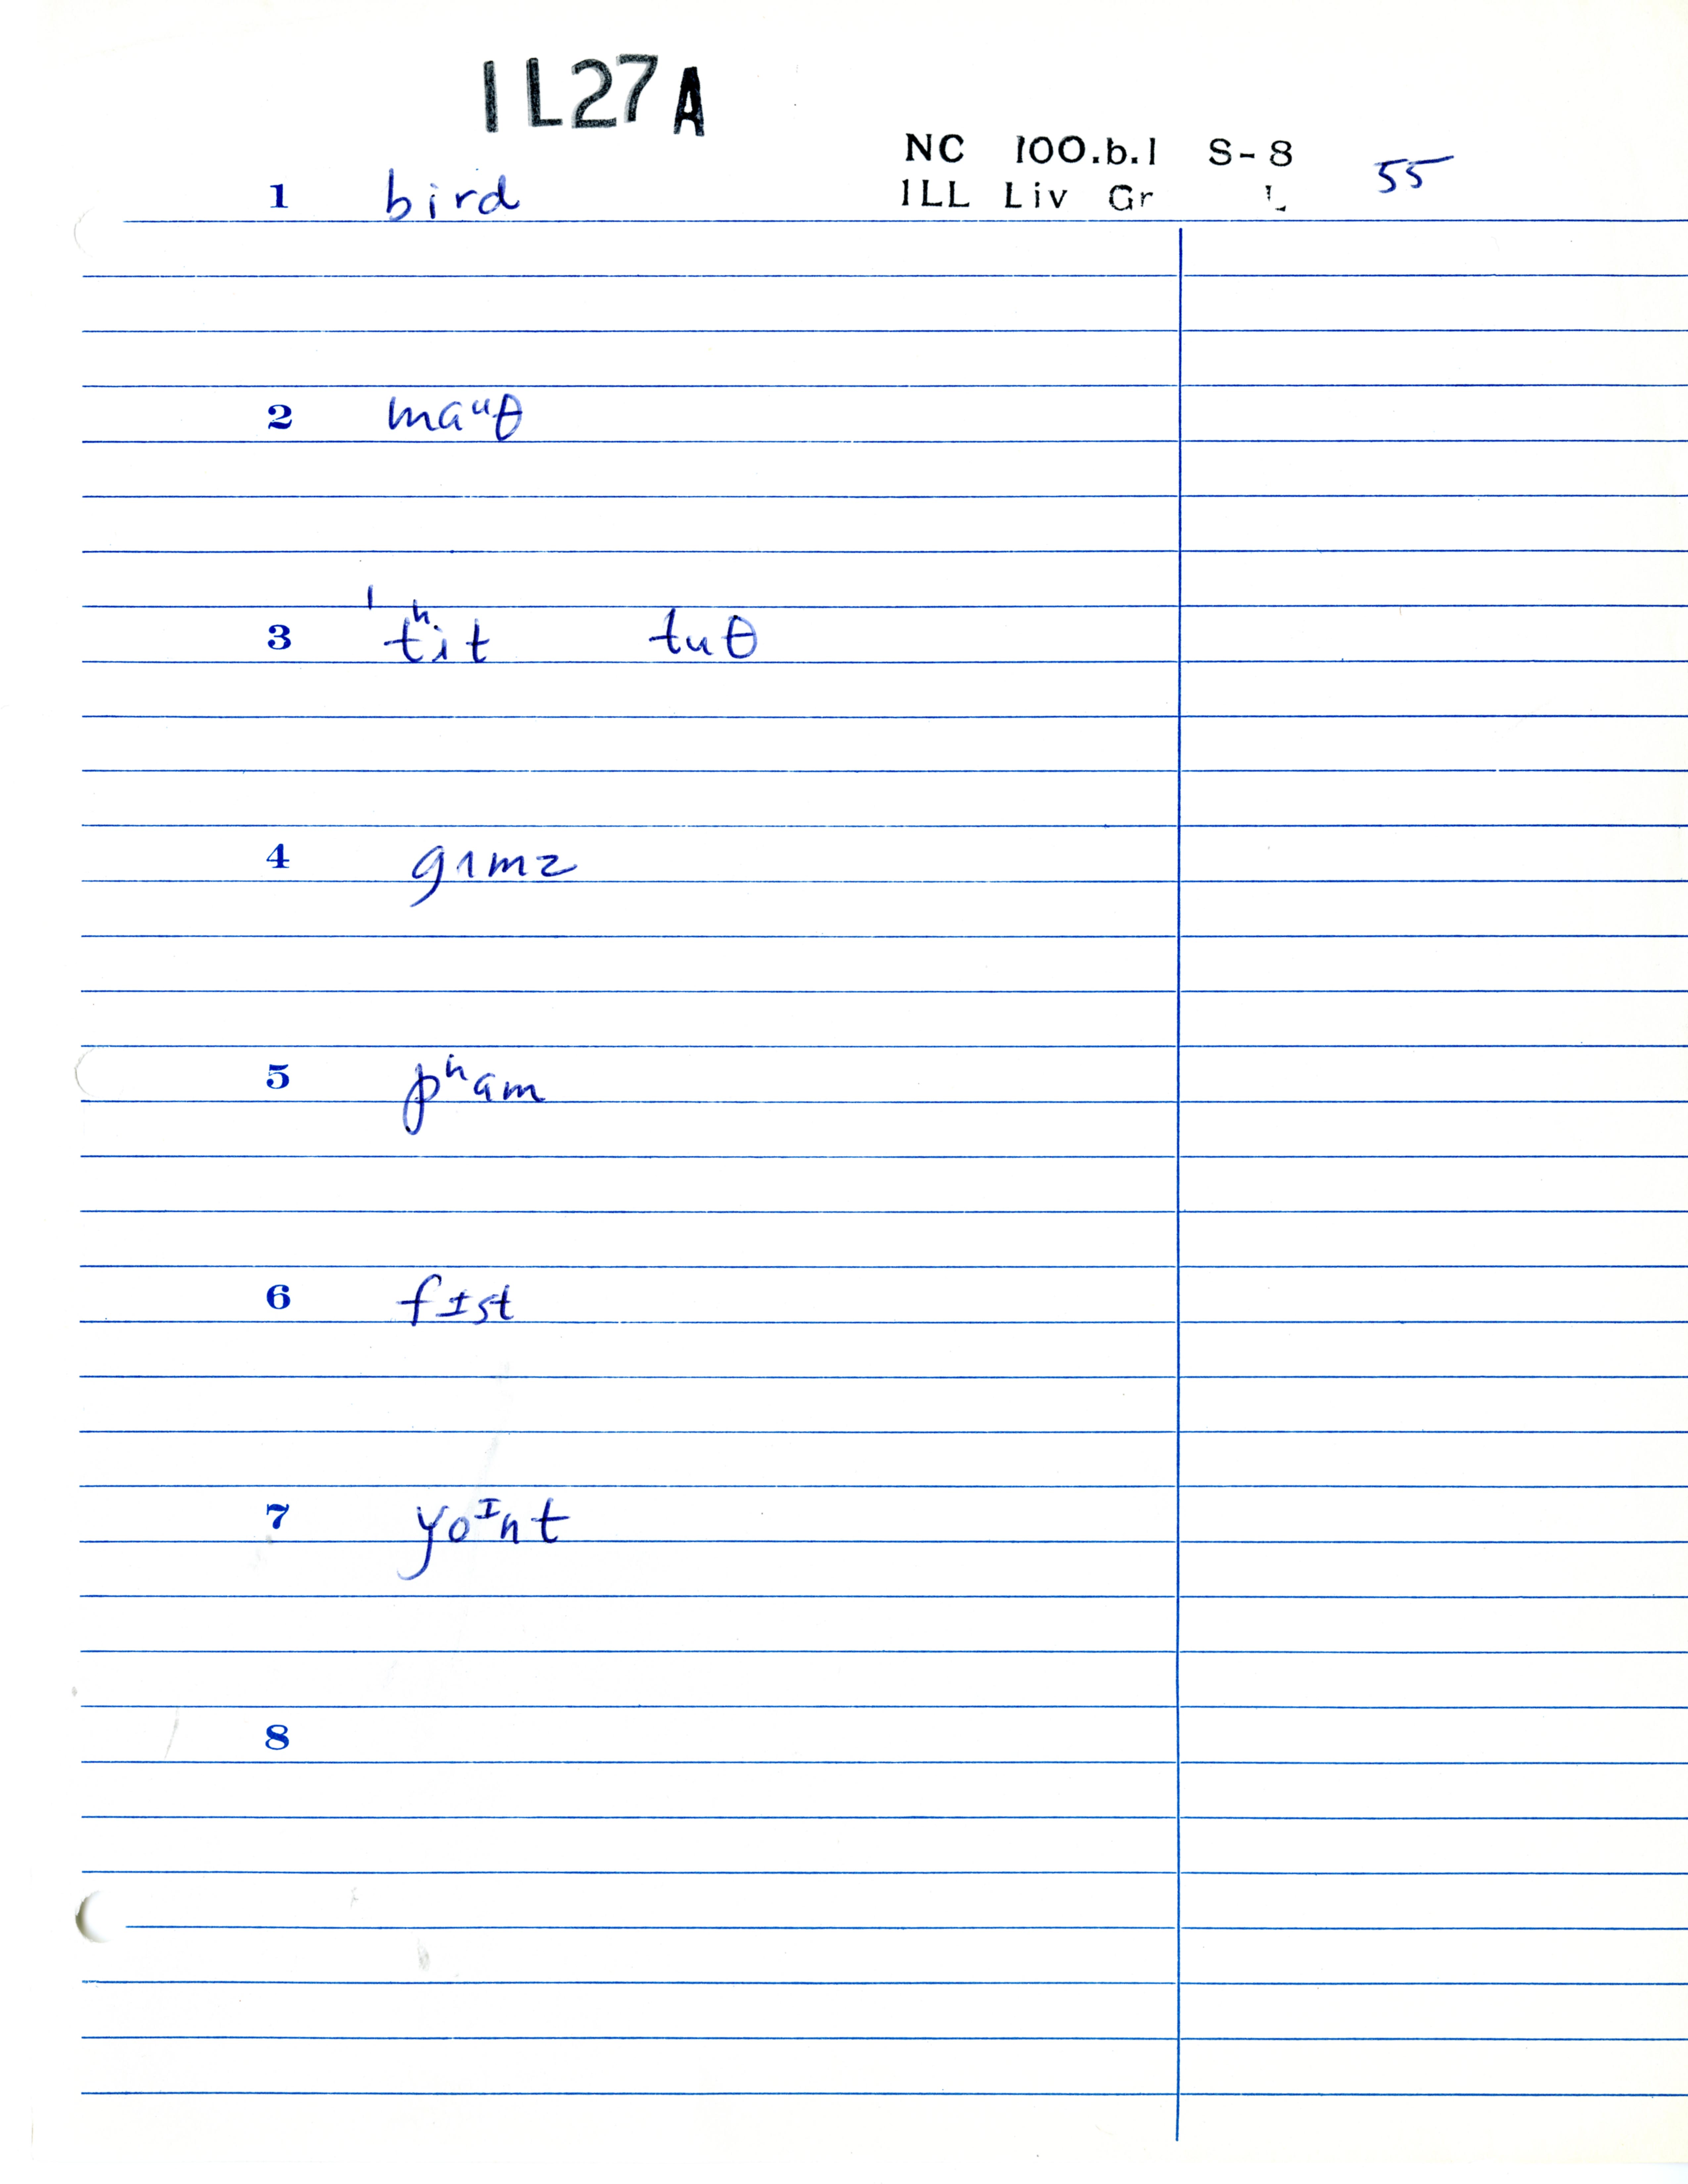 IL27A
NC 100.b.1 S-8 55
ILL Liv Gr L
1 bird
2 maᵘθ
3 ˈtʰit tuθ
4 gʌmz
5 pʰam
6 fɪst
7 yoᴵnt
8